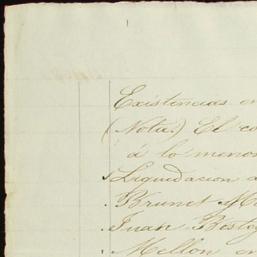 Existencias en
(Nota.) El co
á lo menos
Liquidacion d
Brunet M
Juan Besto
Mellon en